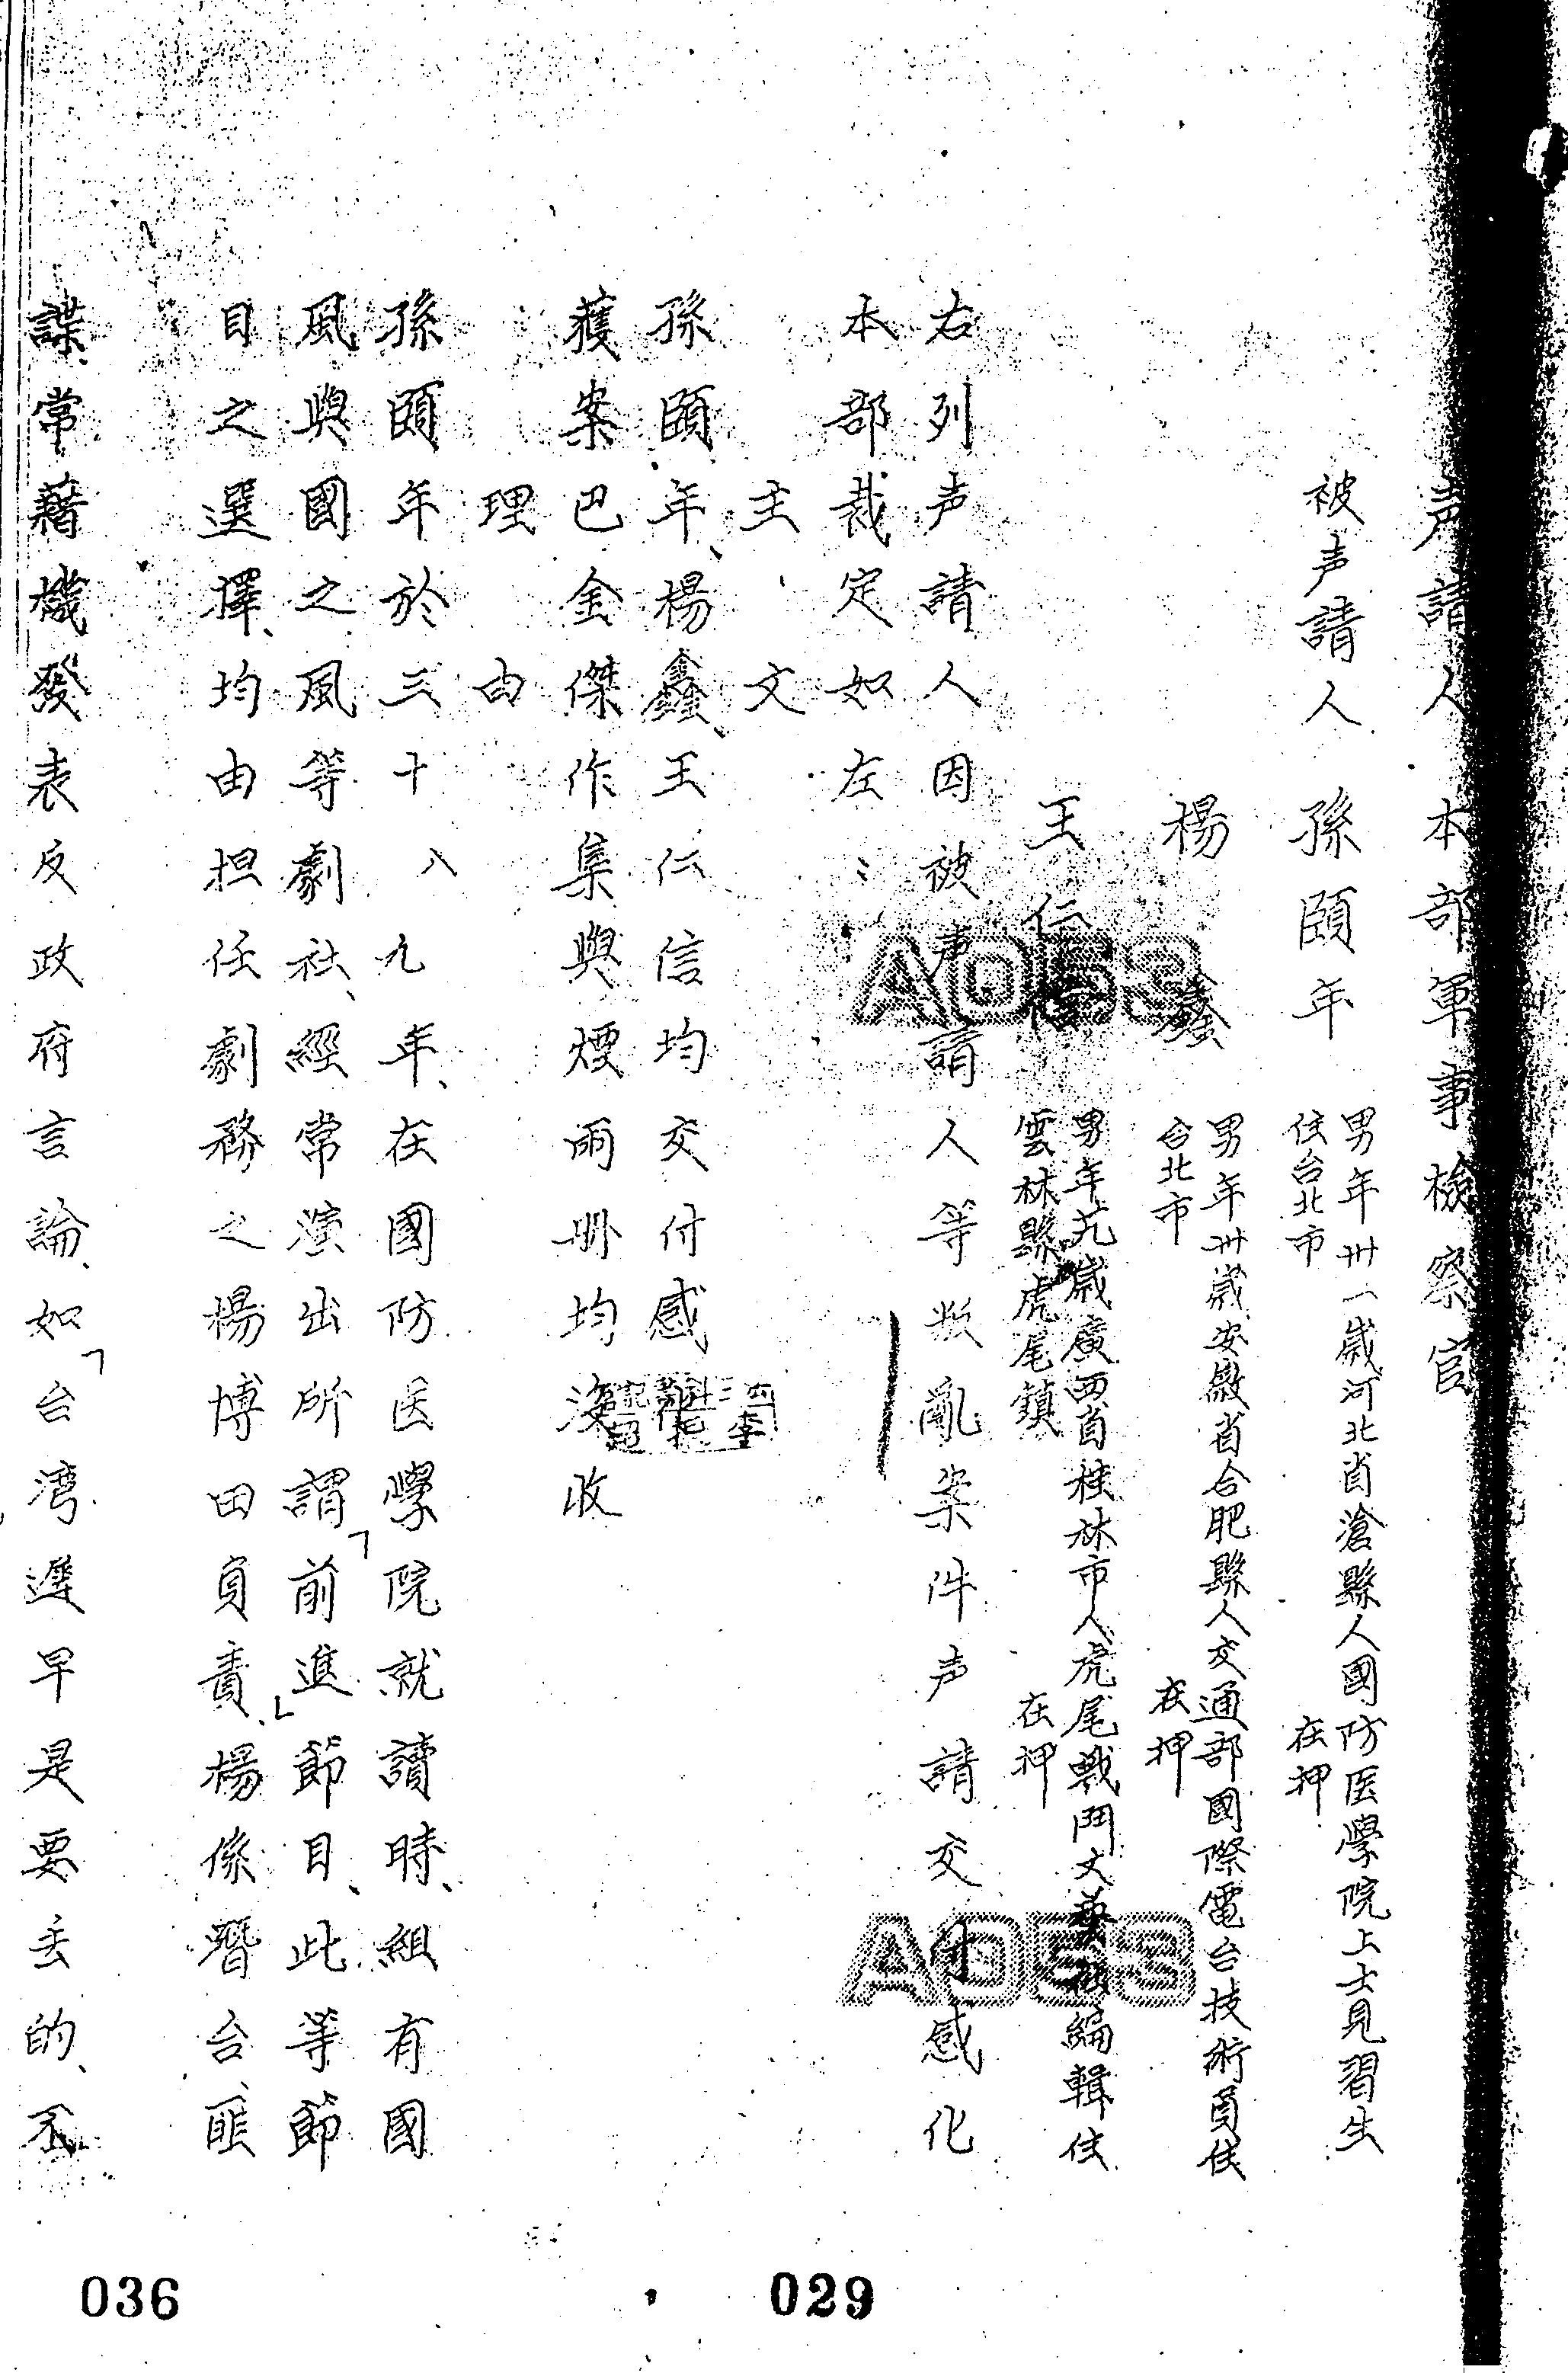 声請人 本部軍事檢察官
被声請人 孫頤年 男年卅一歲河北省滄縣人國防医學院上士見習生
住台北市 在押
楊鑫 男年卅歲安徽省合肥縣人交通部國際電台技術員住
台北市 在押
王仁信 男年歲廣西省桂林市人虎尾戰鬥文藝社編輯住
雲林縣虎尾鎮 在押
右列声請人因被声請人等叛亂案件声請交付感化
本部裁定如左：
主文
孫頤年、楊鑫、王仁信均交付感化
獲案巴金傑作集與煙雨冊均沒收
理由
孫頤年於三十八九年、在國防医學院就讀時、組有國
風與國之風等劇社、經常演出所謂「前進節目、此等節
目之選擇、均由担任劇務之楊博田負責」楊係潛台匪
諜常藉機發表反政府言論、如「台湾遲早是要丢的、不
A053
A053
036
029